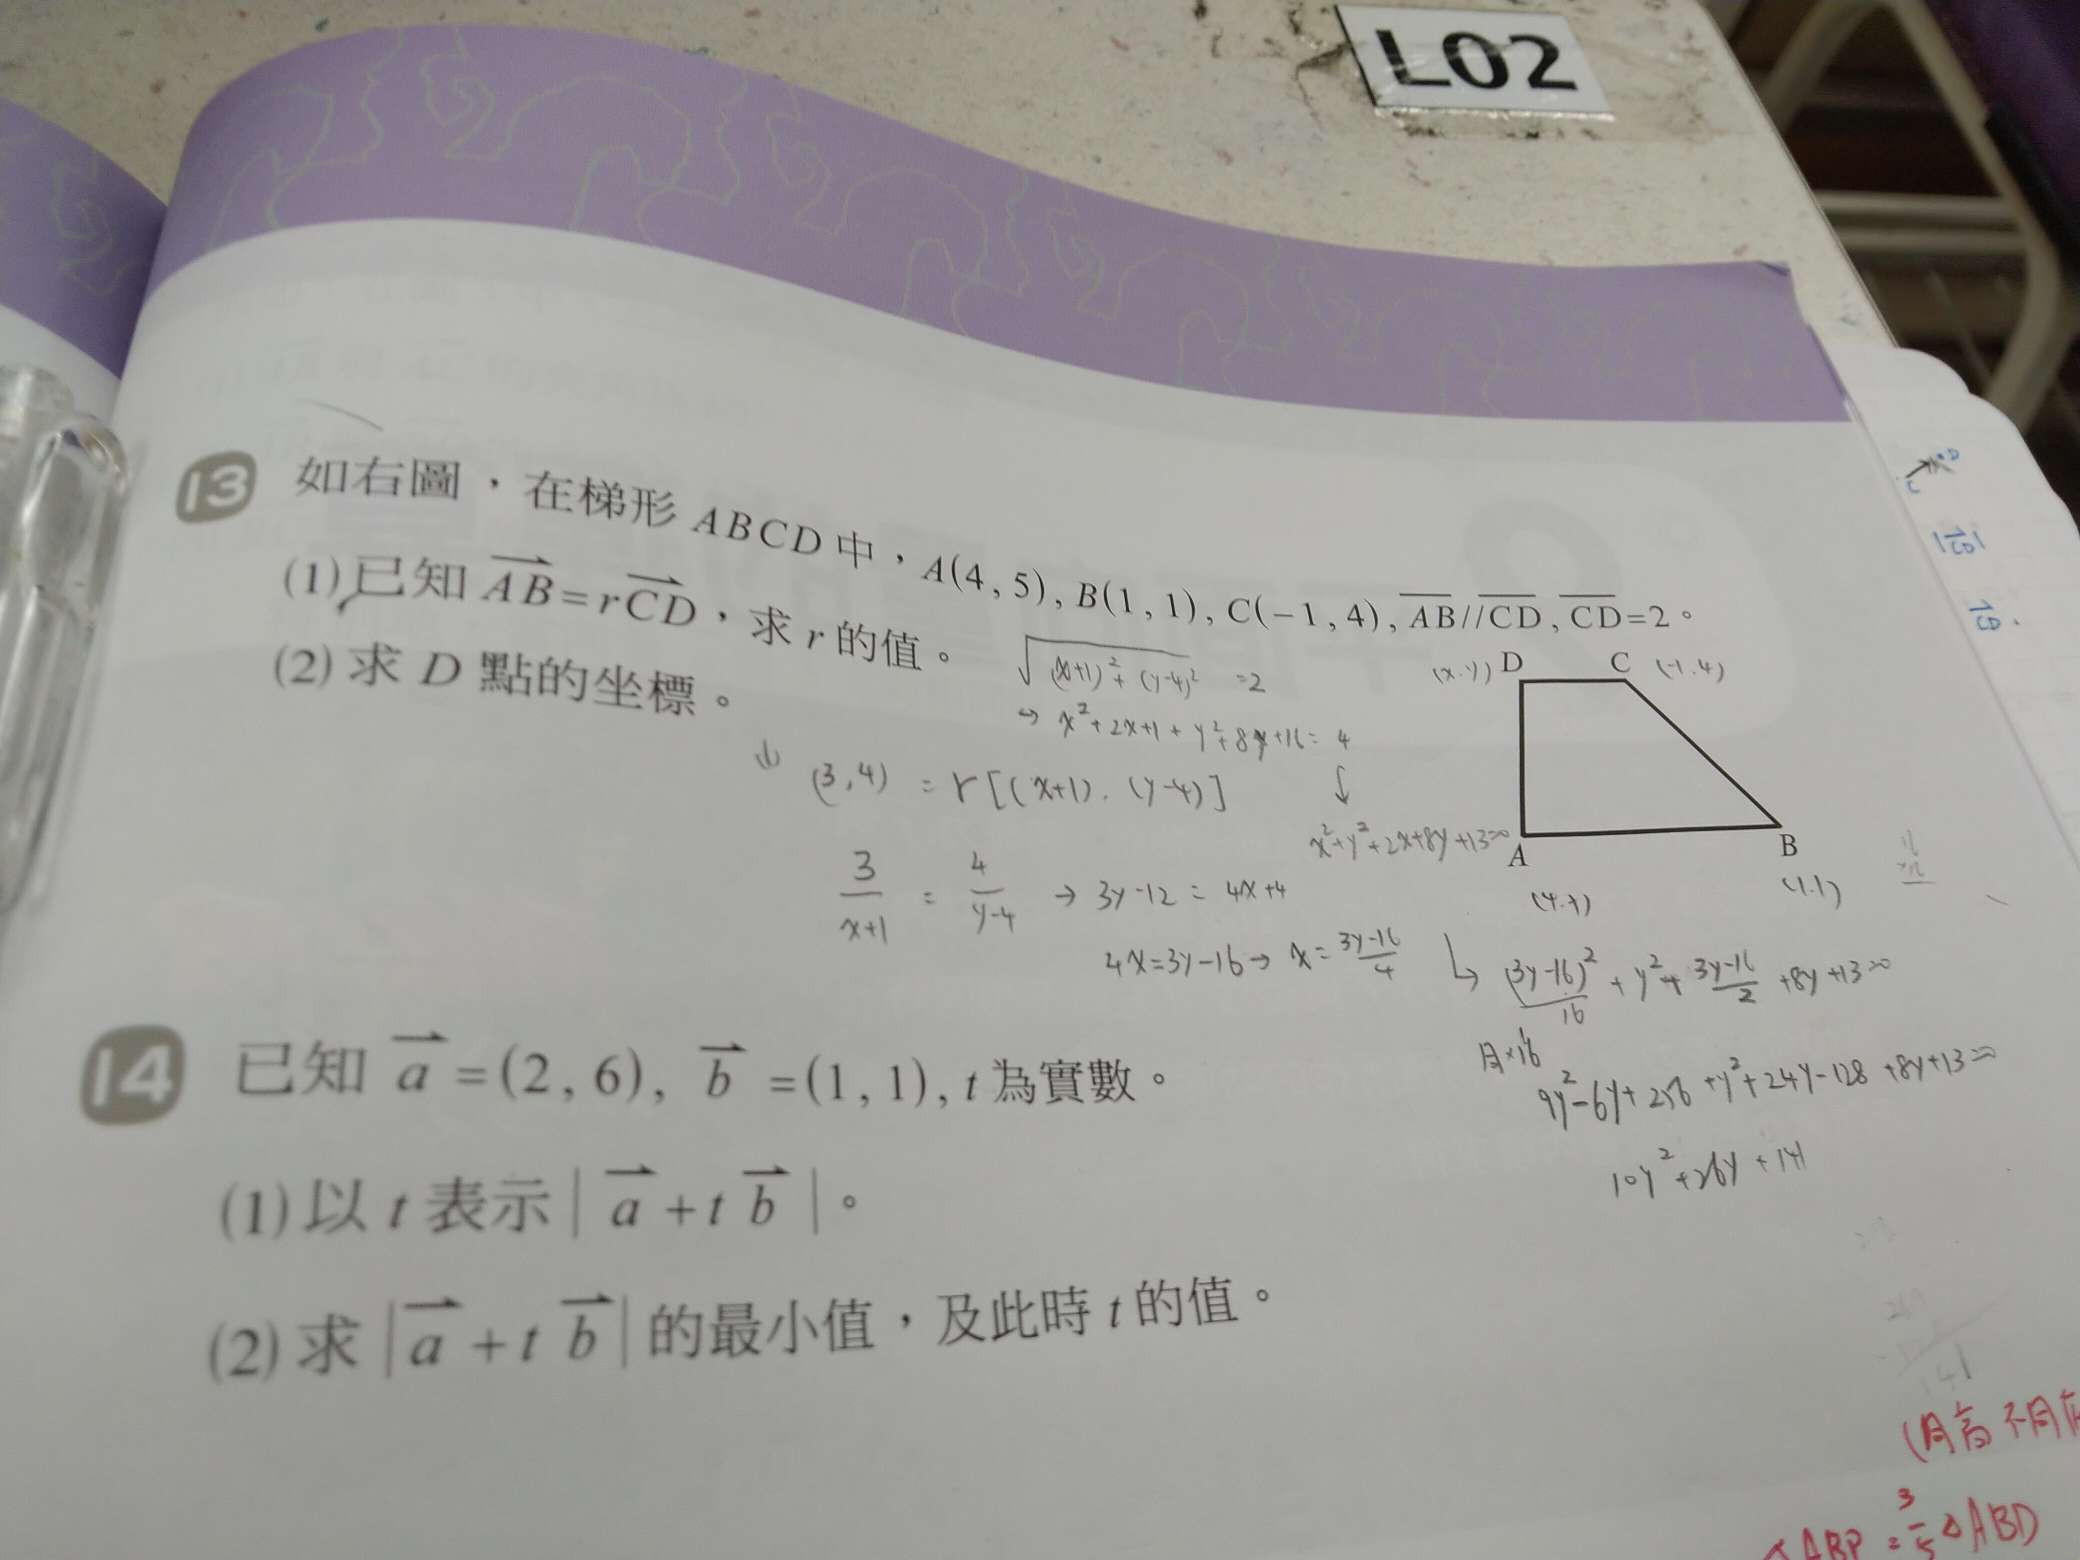 L02
13 如右圖，在梯形 ABCD 中，A(4, 5), B(1, 1), C(−1, 4), AB//CD, CD=2。
(1) 已知 AB=rCD，求 r 的值。
(2) 求 D 點的坐標。
√(x+1)²+(y-4)² =2
→ x²+2x+1+y²+8y+16=4
(3,4) = r[(x+1).(y-4)]
x²+y²+2x+8y+13=0
3/(x+1) = 4/(y-4) → 3y-12 = 4x+4
4x=3y-16→ x=(3y-16)/4
(x.y) D
C (-1.4)
A
B
(1.1)
(3y-16)²/16 + y²+ (3y-16)/2 +8y+13=0
×16
9y²-6y+256+y²+24y-128+8y+13=0
10y²+26y+141
14 已知 a=(2, 6), b=(1, 1), t 為實數。
(1) 以 t 表示 | a+t b |。
(2) 求 | a+t b | 的最小值，及此時 t 的值。
141
不同
ABP = 3/5 △ABD